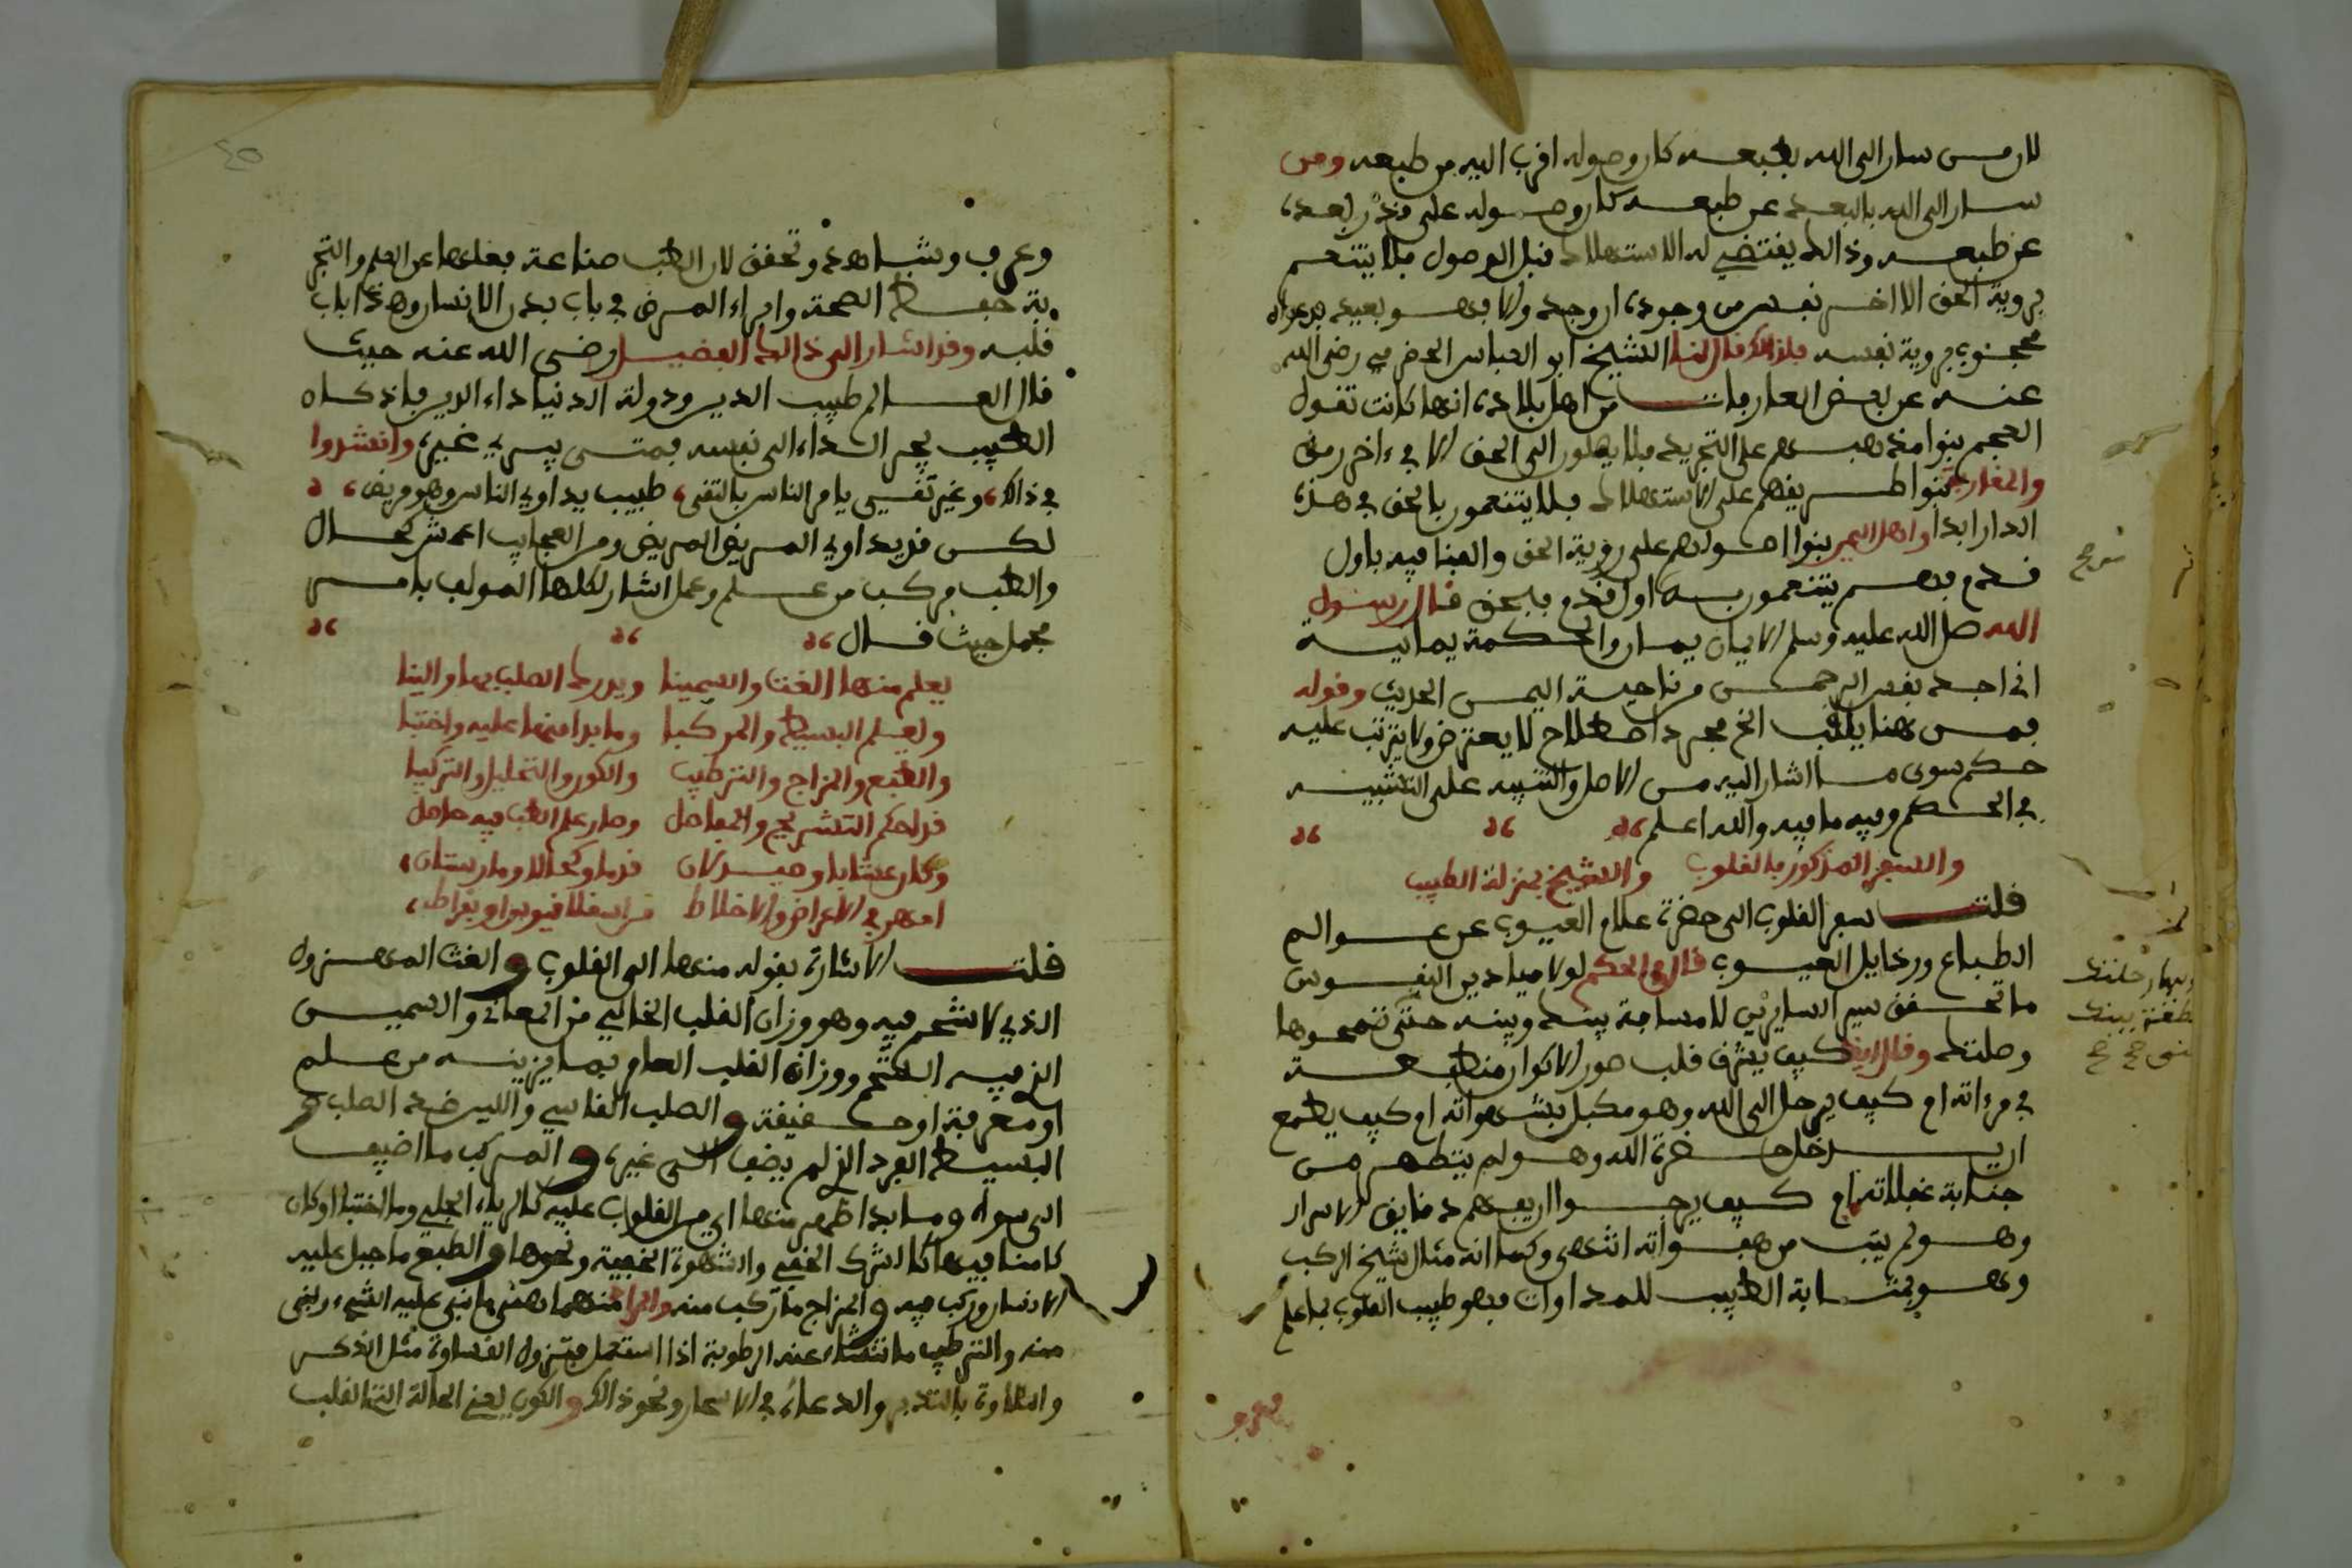 لان من سار الى الله بطبعه كان وصوله اقرب اليه من طبعه ومن
سار الى الله بالبعد عن طبعه كان وصوله على قدر بعده
عن طبعه وذالك يقتضي له الاستهلاك قبل الوصول فلا يتنعم
برؤية الحق الا اخر نفس من وجوده ان وجد والا فهو بعيد
محجوب برؤية نفسه فلذالك قال لنا الشيخ ابو العباس الحضرمي رضي الله
عنه عن بعض العارفات من اهل بلاده انها كانت تقول
العجم بنوا مذهبهم على التجريد فلا يصلون الى الحق الا في ءاخر رمق
والمغاربة بنوا طريقهم على الاستهلاك فلا يتنعمون بالحق في هذه
الدار ابدا واهل اليمن بنوا اصولهم على رؤية الحق والفنا فيه باول
قدم فهم يتنعمون به اول قدم فبحق قال رسول
الله صلى الله عليه وسلم الايمان يمان والحكمة يمانية
اني اجد نفس الرحمن من ناحية اليمن الحديث وقوله
فمن هنا يلقب الخ مجرد اصطلاح لا يعترض ولا يترتب عليه
حكم سوى ما اشار اليه من الاصل والتنبيه على التشبيه
في الحكم وفيه ما فيه والله اعلم
والسفر المذكور بالقلوب والشيخ بمنزلة الطبيب
قلت سفر القلوب الى حضرة علام الغيوب عن عوالم
الطباع ورذايل العيوب قال في الحكم لولا ميادين النفوس
ما تحقق سير السايرين لا مسافة بينك وبينه حتى تمحوها
وصلتك وقال ايضا كيف يشرق قلب صور الاكوان منطبعة
في مرءاته ام كيف يرحل الى الله وهو مكبل بشهواته ام كيف يطمع
ان يدخل حضرة الله وهو لم يتطهر من
جنابة غفلاته ام كيف يرجوا ان يفهم دقايق الاسرار
وهو لم يتب من هفواته انتهى وكما انه مثال شيخ الركب
وهو بمثابة الطبيب للمداوات فهو طبيب القلوب بما علم
وعرف وشاهد وتحقق لان الطب صناعة فعلها عن العلم والتجر
بة حفظ الصحة وابراء المرض في باب بدن الانسان وهذا باب
قلبه وقد اشار الى ذالك الفضيل رضي الله عنه حيث
قال العالم طبيب الدين ودولة الدنيا داء الدين فاذا كان
الطبيب يجر الداء الى نفسه فمتى يبرئ غيره وانشدوا
في ذالك وغير تقي يامر الناس بالتقى طبيب يداوي الناس وهو مريض
لكن قد يداوي المريض المريض ومن العجايب اعمش كحال
والطب مركب من علم وعمل اشار لكلها المولف بامر
مجمل حيث قال
يعلم منها الغث والسمينا ويدرك الصلب بها والينا
ويعلم البسيط والمركبا وما بدا منها عليه واختبا
والطبع والمزاج والترطيب والكون والتحليل والتركيبا
قد احكم التشريح والمفاصل وصار علم الطب فيه حاصل
وكان عشابا وصيدلان قدما وكحالا ومارستان
امهر في الاعراض والاخلاط من اسقلافيوس او بقراط
قلت الاشارة بقوله منها الى القلوب والغث المهزول
الذي لا شحم فيه وهو وزان القلب الخالي من المعاني والسمين
الذ فيه الشحم ووزان القلب العامر بما يزينه من علم
او معرفة او حقيقة والصلب القاسي واللين ضد الصلب و
البسيط المفرد الذ لم يضف الى غيره والمركب ما اضيف
الى سواه وما بدا ظهر منها اي من القلوب عليه كالرياء الجلي وما اختبا او كان
كامنا فيها كالشرك الخفي والشهوة الخفية ونحوها والطبع ما جبل عليه
الانسان وركب فيه والمزاج ما تركب منه والمراد منهما
منه والترطيب ما تنشا عنه الرطوبة اذا استعمل فتزول القساوة مثل الذكر
والتلاوة بالتدبر والدعاء في الاسحار ونحو ذالك والكون يعني الحالة التي القلب